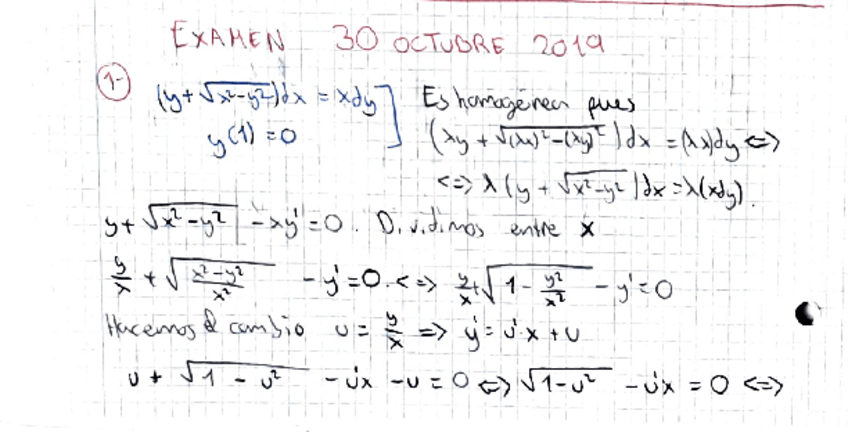 EXAMEN 30 OCTUBRE 2019
1- (y+√(x²-y²))dx = xdy Es homogénea pues
y(1) = 0 (λy + √((λx)²-(λy)²))dx = (λx)dy <=>
<=> λ(y + √(x²-y²))dx = λ(xdy).
y + √(x²-y²) - xy' = 0. Dividimos entre x
y/x + √((x²-y²)/x²) - y' = 0. <=> y/x + √(1 - y²/x²) - y' = 0
Hacemos el cambio u = y/x => y' = u'x + u
u + √(1 - u²) - u'x - u = 0 <=> √(1-u²) - u'x = 0 <=>